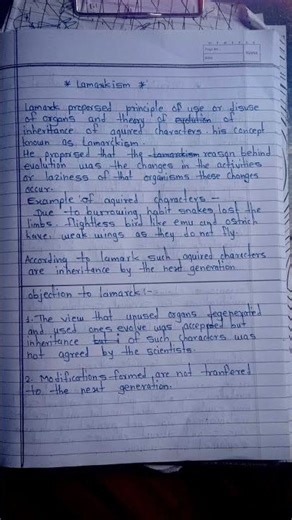 * Lamarkism *
Lamark propersed principle of use or disuse
of organs and theory of evolution of
inheritance of aquired characters his concept
known as Lamarckism.
He propersed that the lamarkism reason behind
evolution was the changes in the activities
or laziness of that organisms these changes
occur.
Example of aquired characters -
Due to burrowing habit snakes lost the
limbs. flightless bird like emu and ostrich
have weak wings as they do not fly.
According to lamark such aquired characters
are inheritance by the next generation
objection to lamarck:-
1. The view that unused organs degenerated
and used ones evolve was accepted but
inheritance but i of such characters was
not agreed by the scientists.
2. Modifications formed are not tranfered
to the next generation.